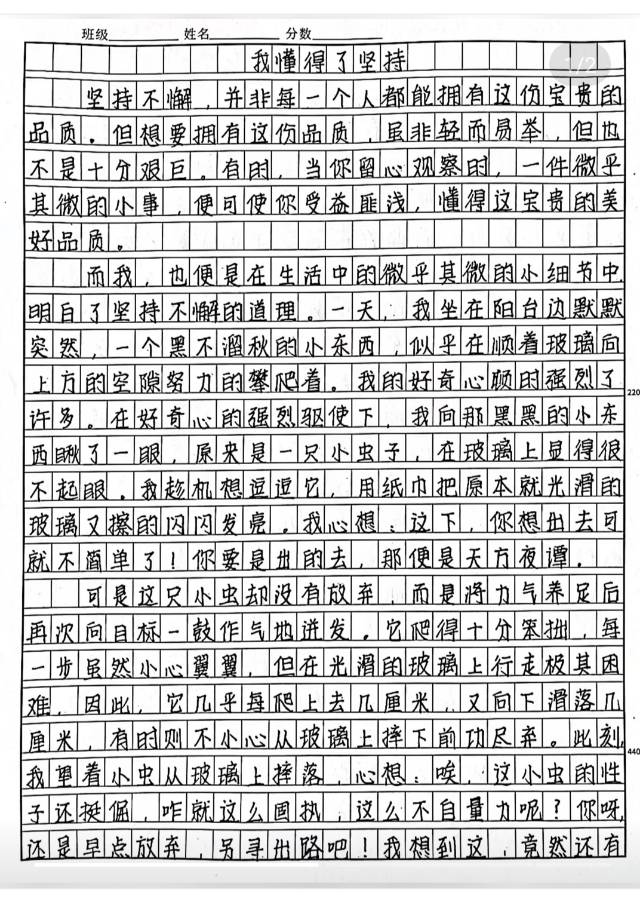 班级 姓名 分数
我懂得了坚持
1/2
坚持不懈，并非每一个人都能拥有这份宝贵的
品质。但想要拥有这份品质，虽非轻而易举，但也
不是十分艰巨。有时，当你留心观察时，一件微乎
其微的小事，便可使你受益匪浅，懂得这宝贵的美
好品质。
而我，也便是在生活中的微乎其微的小细节中，
明白了坚持不懈的道理。一天，我坐在阳台边默默
突然，一个黑不溜秋的小东西，似乎在顺着玻璃向
上方的空隙努力的攀爬着。我的好奇心顾时强烈了
220
许多。在好奇心的强烈驱使下，我向那黑黑的小东
西瞅了一眼，原来是一只小虫子，在玻璃上显得很
不起眼。我趁机想逗逗它，用纸巾把原本就光滑的
玻璃又擦的闪闪发亮。我心想：这下，你想出去可
就不简单了！你要是出的去，那便是天方夜谭。
可是这只小虫却没有放弃，而是将力气养足后
再次向目标一鼓作气地迸发。它爬得十分笨拙，每
一步虽然小心翼翼，但在光滑的玻璃上行走极其困
难，因此，它几乎每爬上去几厘米，又向下滑落几
厘米，有时则不小心从玻璃上摔下前功尽弃。此刻，
440
我望着小虫从玻璃上摔落，心想：唉，这小虫的性
子还挺倔，咋就这么固执，这么不自量力呢？你呀，
还是早点放弃，另寻出路吧！我想到这，竟然还有